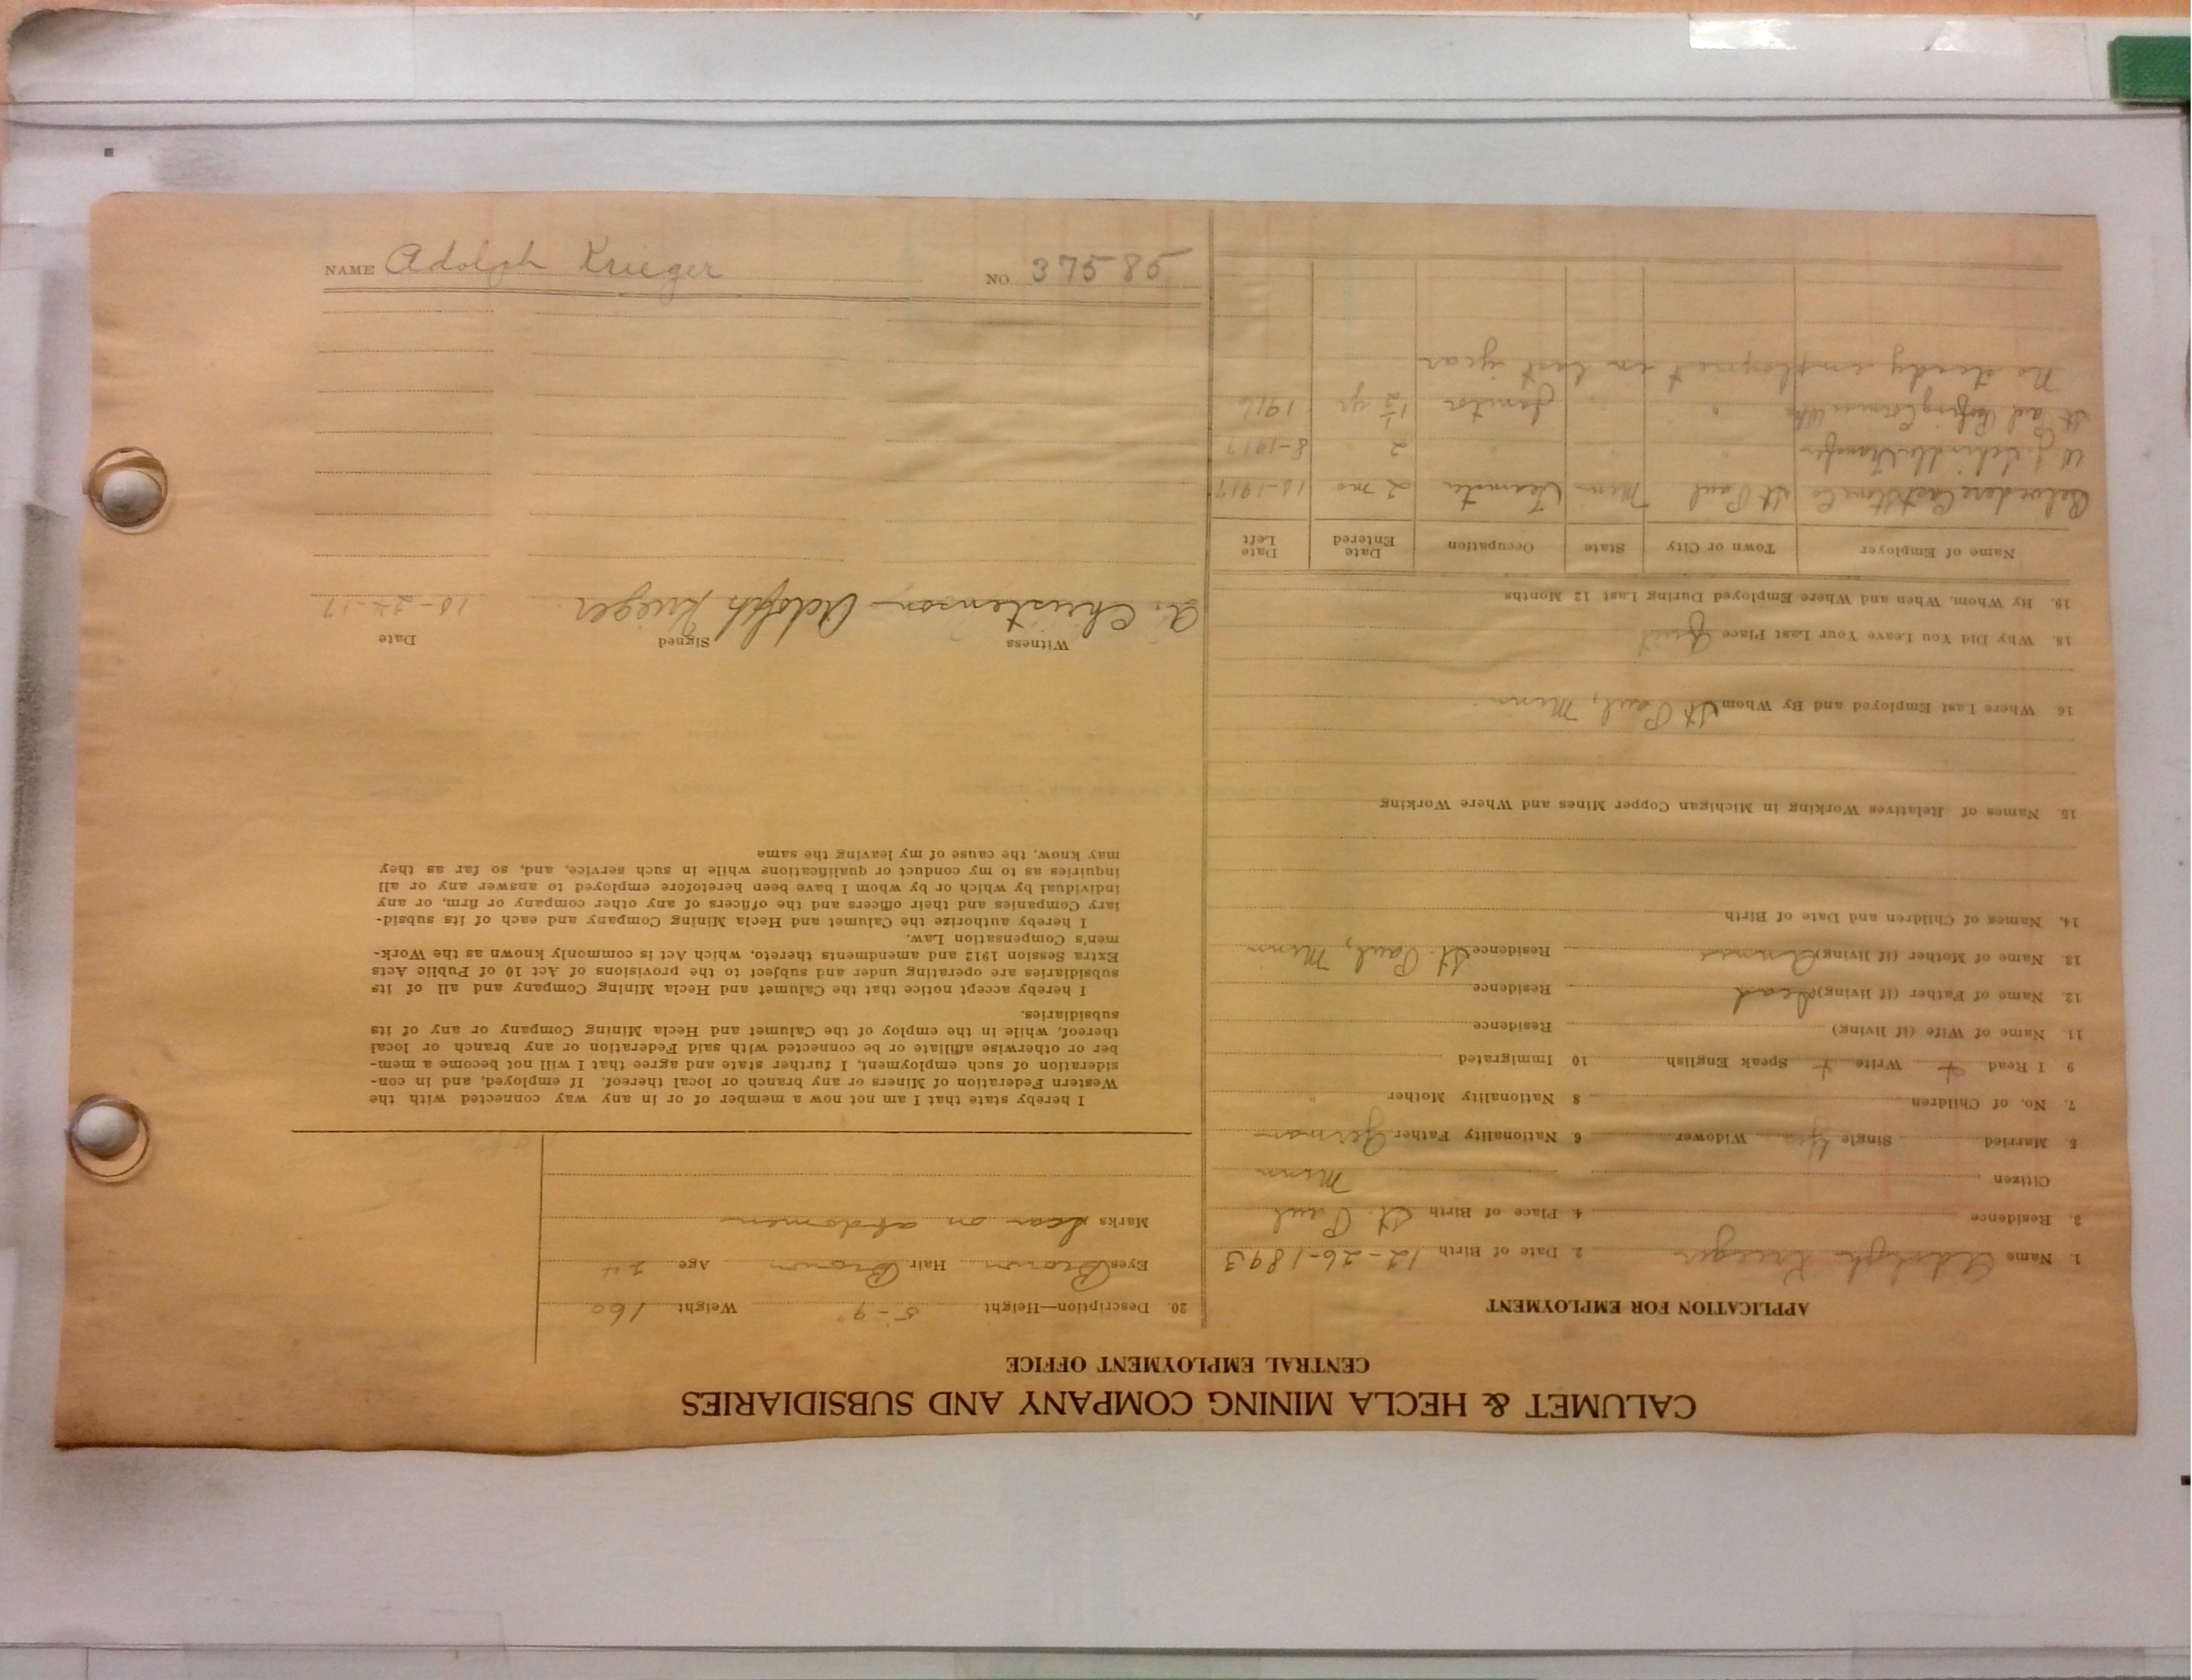 CALUMET & HECLA MINING COMPANY AND SUBSIDIARIES
CENTRAL EMPLOYMENT OFFICE
APPLICATION FOR EMPLOYMENT
1. Name Adolph Krieger 2. Date of Birth 12-26-1893
3. Residence 4. Place of Birth St. Paul
Citizen Minn
5. Married Single Yes Widower 6 Nationality Father German
7. No. of Children 8 Nationality Mother "
9 I Read + Write + Speak English 10 Immigrated
11. Name of Wife (if living) Residence
12 Name of Father (if living) Dead Residence
13. Name of Mother (if living) Residence St. Paul, Minn
14. Names of Children and Date of Birth
15 Names of Relatives Working in Michigan Copper Mines and Where Working
16 Where Last Employed and By Whom St Paul, Minn
18. Why Did You Leave Your Last Place Quit
19. By Whom, When and Where Employed During Last 12 Months
Name of Employer Town or City State Occupation Date Entered Date Left
Belvedere Cast Stone Co St Paul Minn Teamster 2 mo 10-1917
W. J. Transfer " " " 2 8-1917
St Paul " " Janitor 1½ yr 1916
No steady employment in last year
20. Description—Height 5-9" Weight 160
Eyes Brown Hair Brown Age 24
Marks Scar on abdomen
I hereby state that I am not now a member of or in any way connected with the
Western Federation of Miners or any branch or local thereof. If employed, and in con-
sideration of such employment, I further state and agree that I will not become a mem-
ber or otherwise affiliate or be connected with said Federation or any branch or local
thereof, while in the employ of the Calumet and Hecla Mining Company or any of its
subsidiaries.
I hereby accept notice that the Calumet and Hecla Mining Company and all of its
subsidiaries are operating under and subject to the provisions of Act 10 of Public Acts
Extra Session 1912 and amendments thereto, which Act is commonly known as the Work-
men's Compensation Law.
I hereby authorize the Calumet and Hecla Mining Company and each of its subsid-
iary Companies and their officers and the officers of any other company or firm, or any
individual by which or by whom I have been heretofore employed to answer any or all
inquiries as to my conduct or qualifications while in such service, and, so far as they
may know, the cause of my leaving the same
Witness Signed Date
A. Christenson Adolph Krieger 10-24-17
NAME Adolph Krieger NO 37585